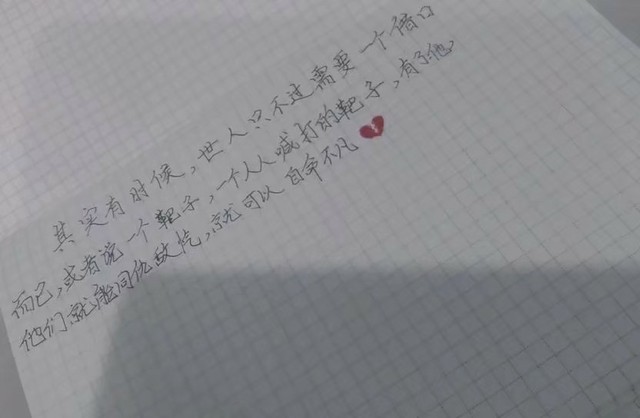 其实有时候，世人只不过需要一个借口
而已，或者说一个靶子，一个人人喊打的靶子，有了他，
他们就能同仇敌忾，就可以自命不凡